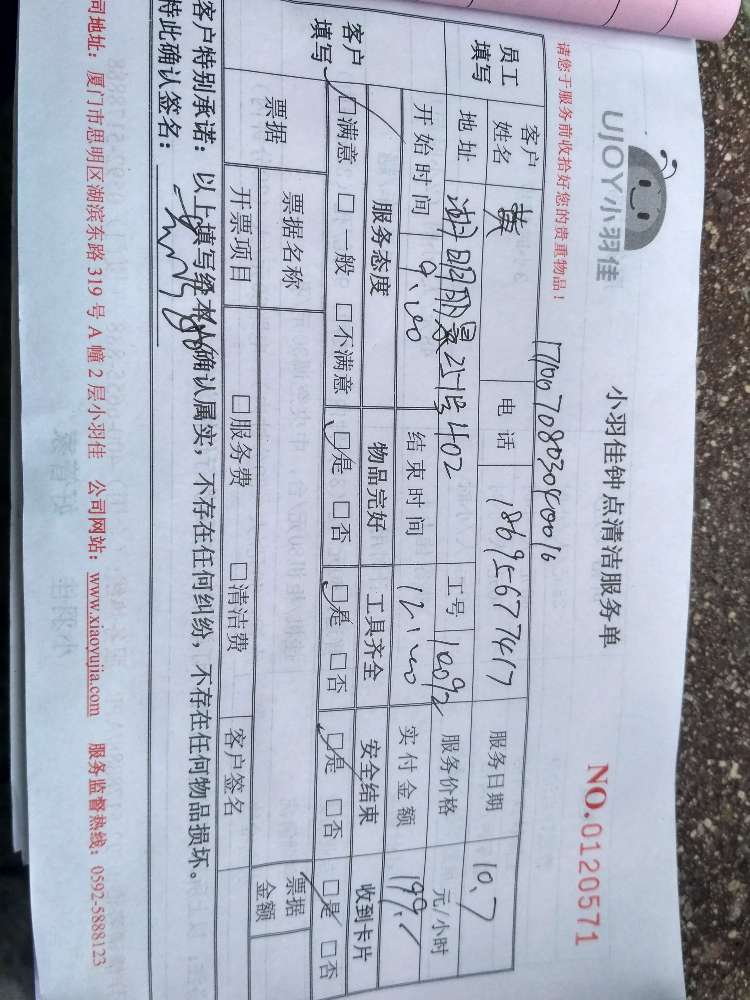 UJOY小羽佳
小羽佳钟点清洁服务单
NO.0120571
请您于服务前收拾好您的贵重物品！
员工填写
客户姓名 黄 电话 18695677417 服务日期 10.7
地址 402 工号 10092 服务价格 元/小时
开始时间 9:00 结束时间 12:00 实付金额 199.
客户填写
服务态度 物品完好 工具齐全 安全结束 收到卡片
□满意 □一般 □不满意 □是 □否 □是 □否 □是 □否 □是 □否
票据 票据名称 票据金额
开票项目 □服务费 □清洁费 客户签名
客户特别承诺：以上填写经本人确认属实，不存在任何纠纷，不存在任何物品损坏。
特此确认签名：
司地址：厦门市思明区湖滨东路 319 号 A 幢 2 层小羽佳 公司网站：www.xiaoyujia.com 服务监督热线：0592-5888123